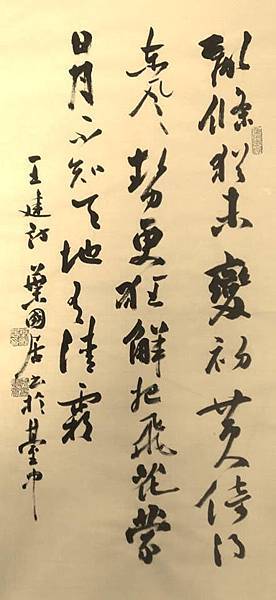 亂條猶未變初黃倚得
東風勢更狂解把飛花蒙
日月不知天地有清霜
王建詩 葉國居書於臺中